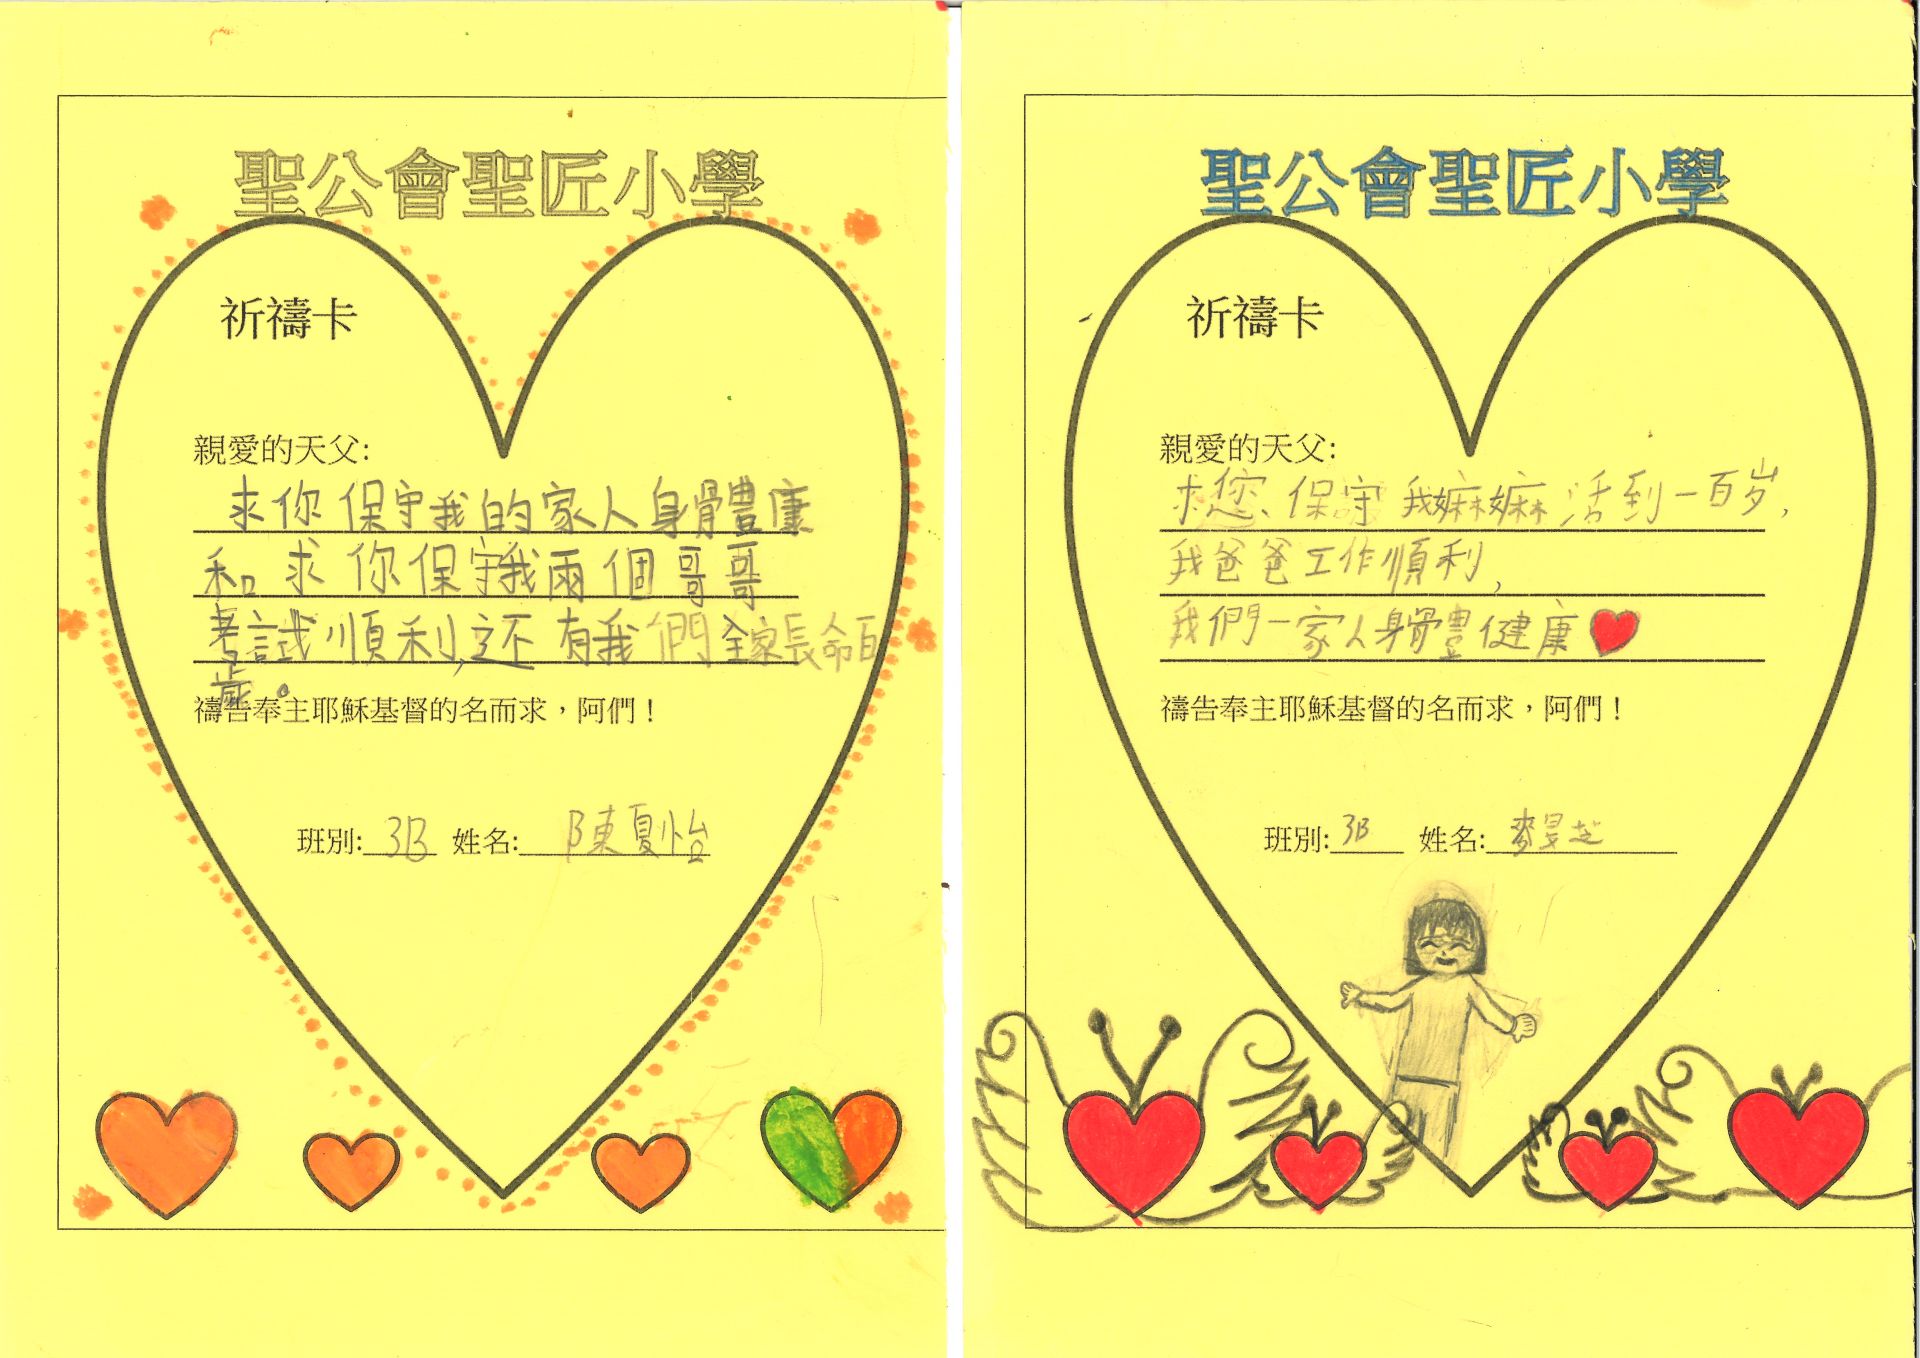 聖公會聖匠小學
祈禱卡
親愛的天父:
求你保守我的家人身體康
和求你保守我兩個哥哥
考試順利,还有我們全家長命百
歲。
禱告奉主耶穌基督的名而求，阿們！
班別: 3B 姓名: 陳夏怡
聖公會聖匠小學
祈禱卡
親愛的天父:
求您保守我嫲嫲活到一百岁,
我爸爸工作順利,
我們一家人身體健康
禱告奉主耶穌基督的名而求，阿們！
班別: 3B 姓名: 麥旻芝